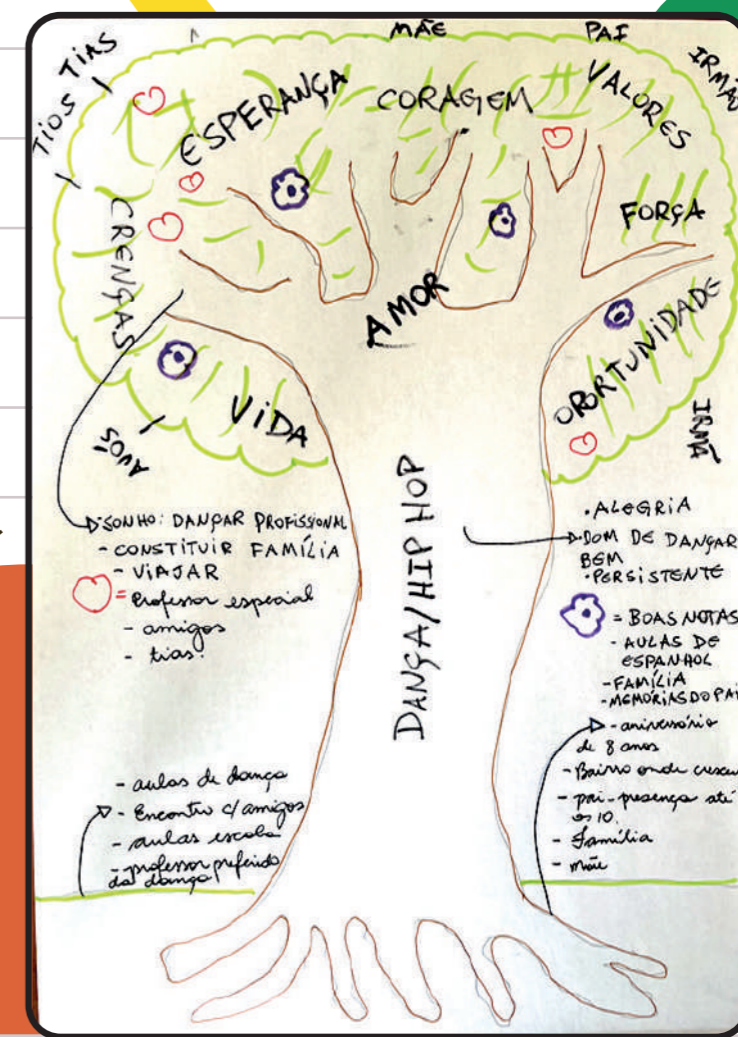 MÃE
PAI
IRMÃO
TIAS
TIOS
ESPERANÇA
CORAGEM
VALORES
FORÇA
CRENÇAS
AMOR
OPORTUNIDADE
VIDA
AVÓS
IRMÃ
DANÇA/HIP HOP
SONHO: DANÇAR PROFISSIONAL
- CONSTITUIR FAMÍLIA
- VIAJAR
= Professor especial
- amigos
- tias.
- aulas de dança
- Encontro c/ amigos
- aulas escola
- professor preferido
da dança
• ALEGRIA
DOM DE DANÇAR
BEM
• PERSISTENTE
= BOAS NOTAS
- AULAS DE
ESPANHOL
- FAMÍLIA
- MEMÓRIAS DO PAI
- aniversário
de 8 anos
- Bairro onde cresceu
- pai - presença até
os 10.
- Família
- mãe